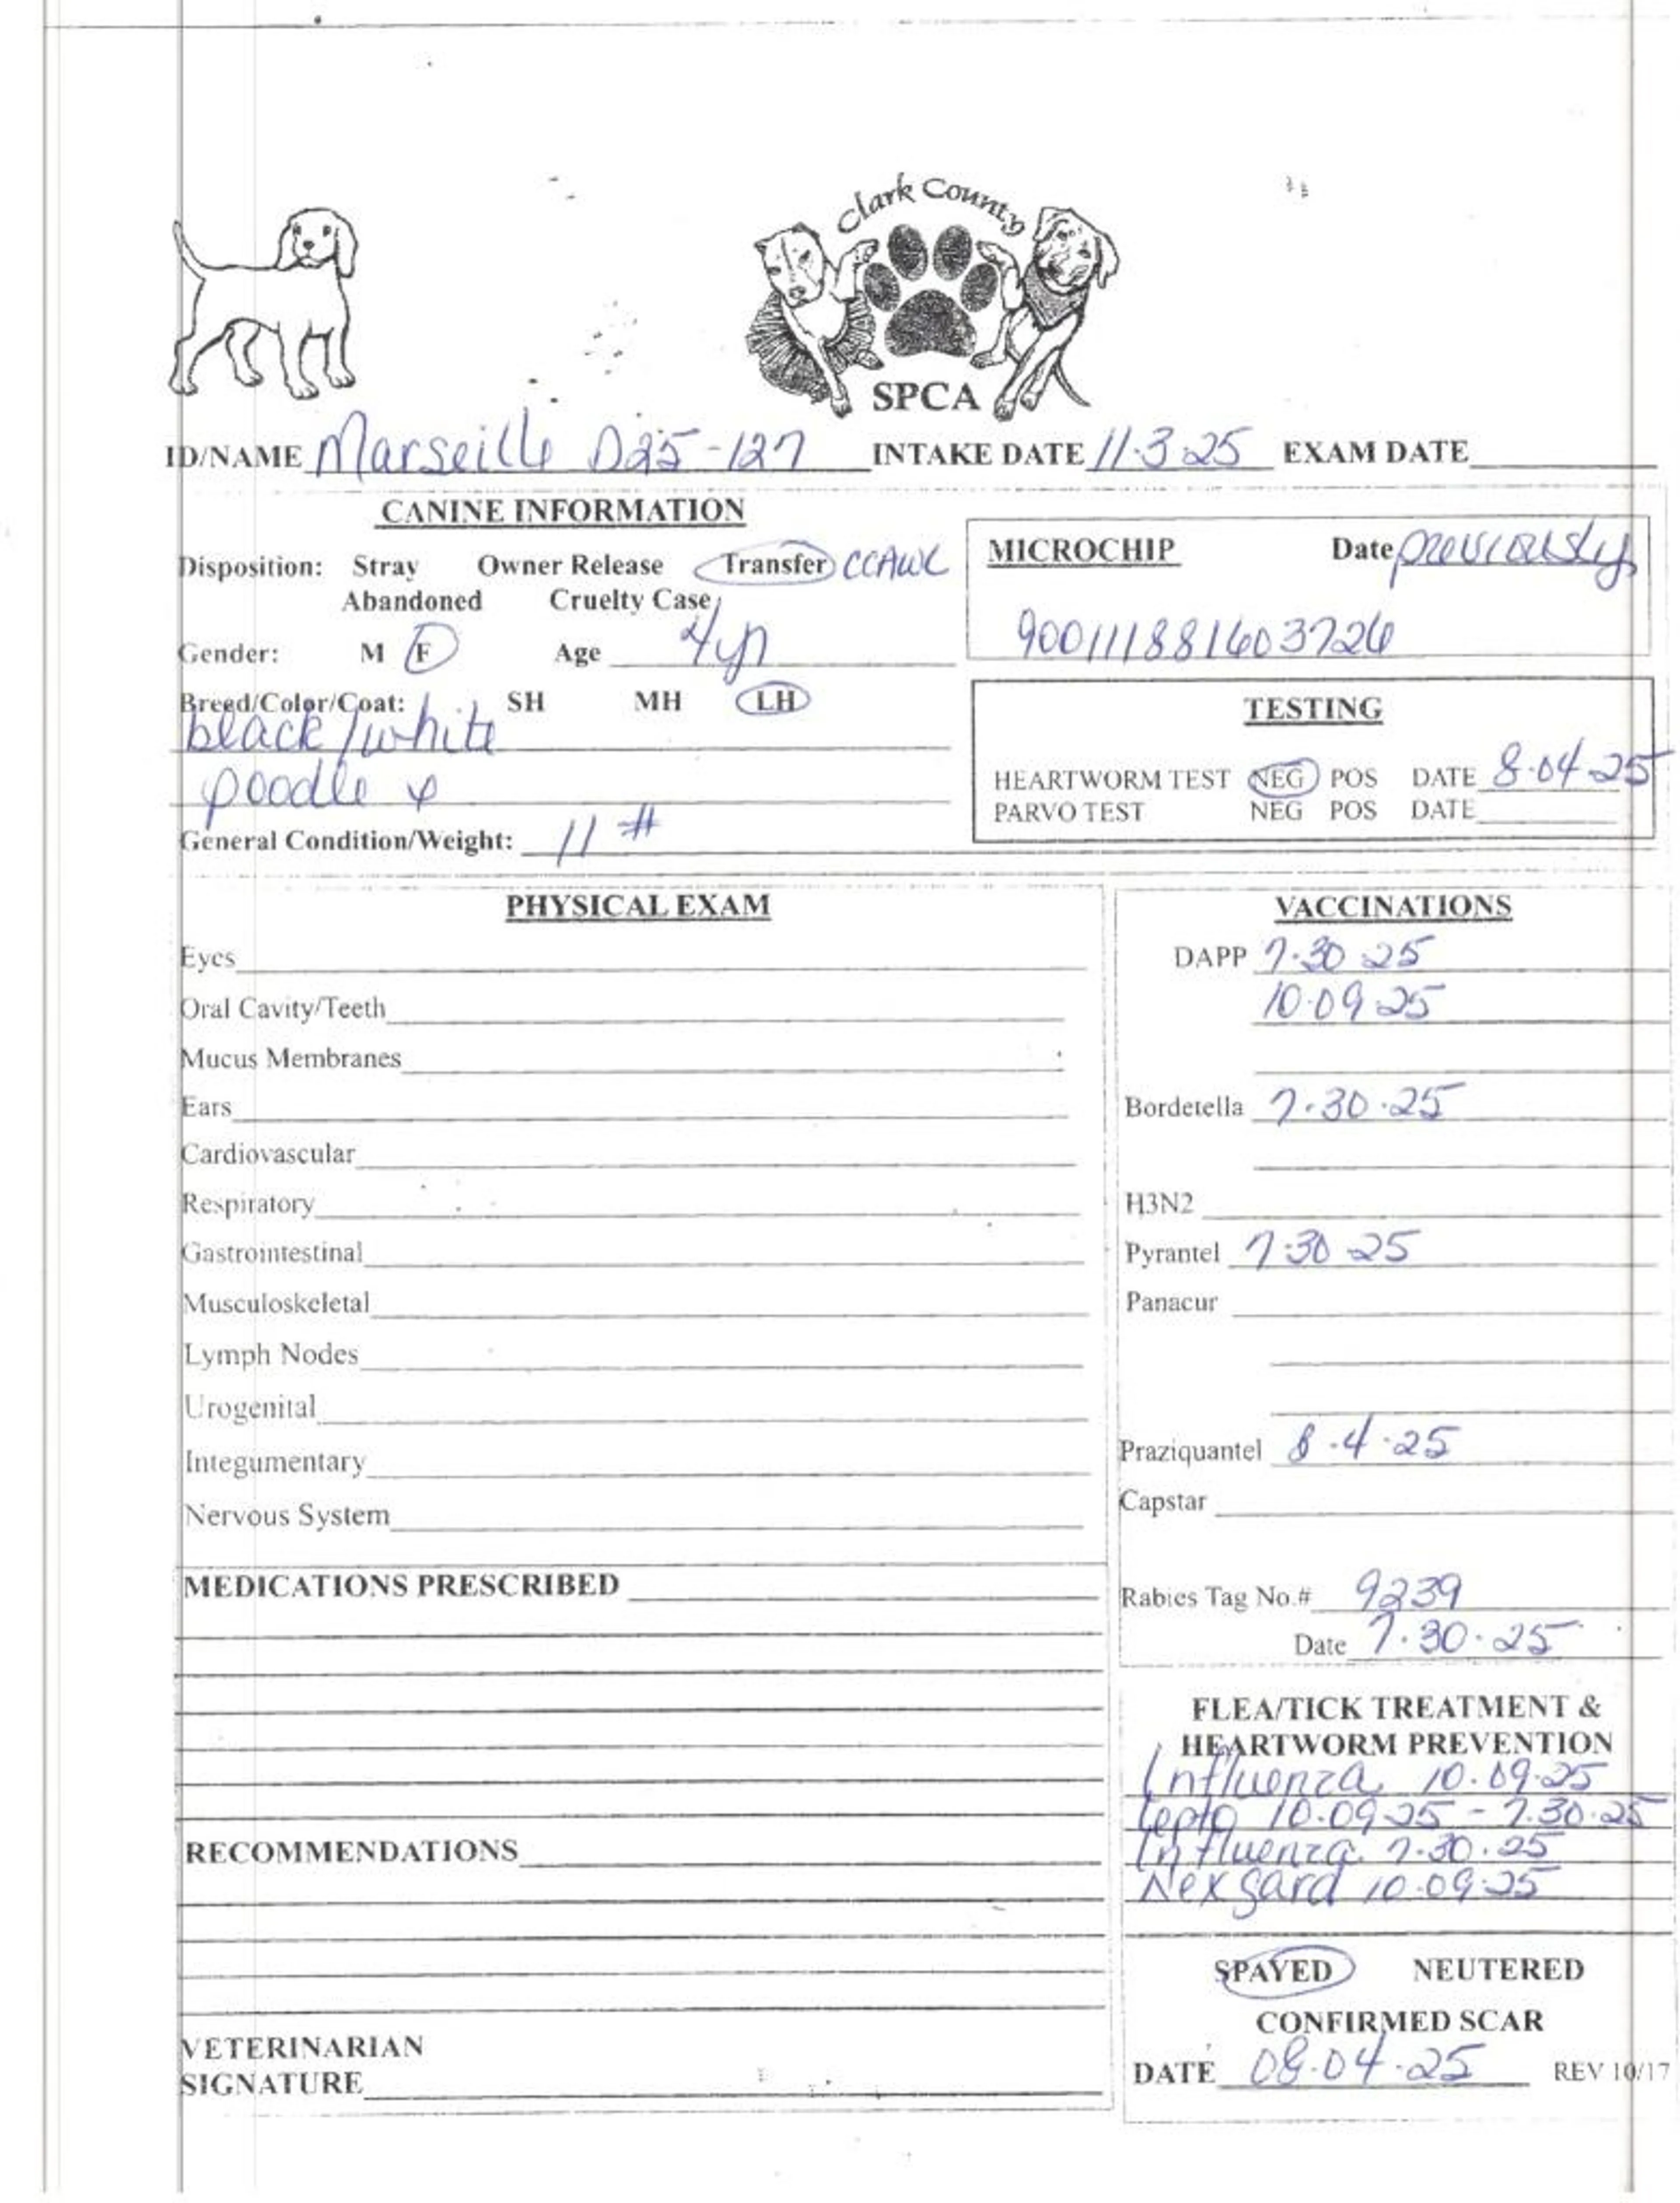 Clark County
SPCA
ID/NAME Marseille D25-127 INTAKE DATE 11-3-25 EXAM DATE
CANINE INFORMATION
Disposition: Stray Owner Release Transfer CCAWL
Abandoned Cruelty Case
Gender: M F Age 4yr
Breed/Color/Coat: SH MH LH
black/white
poodle x
General Condition/Weight: 11 #
MICROCHIP Date previously
900111881603726
TESTING
HEARTWORM TEST NEG POS DATE 8-04-25
PARVO TEST NEG POS DATE
PHYSICAL EXAM
Eyes
Oral Cavity/Teeth
Mucus Membranes
Ears
Cardiovascular
Respiratory
Gastrointestinal
Musculoskeletal
Lymph Nodes
Urogenital
Integumentary
Nervous System
MEDICATIONS PRESCRIBED
RECOMMENDATIONS
VETERINARIAN
SIGNATURE
VACCINATIONS
DAPP 7-30 25
10-09 25
Bordetella 7-30-25
H3N2
Pyrantel 7-30 25
Panacur
Praziquantel 8-4-25
Capstar
Rabies Tag No.# 9239
Date 7-30-25
FLEA/TICK TREATMENT &
HEARTWORM PREVENTION
Influenza 10-09-25
Lepto 10-09-25 - 7-30-25
Influenza 7-30-25
Nexgard 10-09-25
SPAYED NEUTERED
CONFIRMED SCAR
DATE 08-04-25 REV 10/17